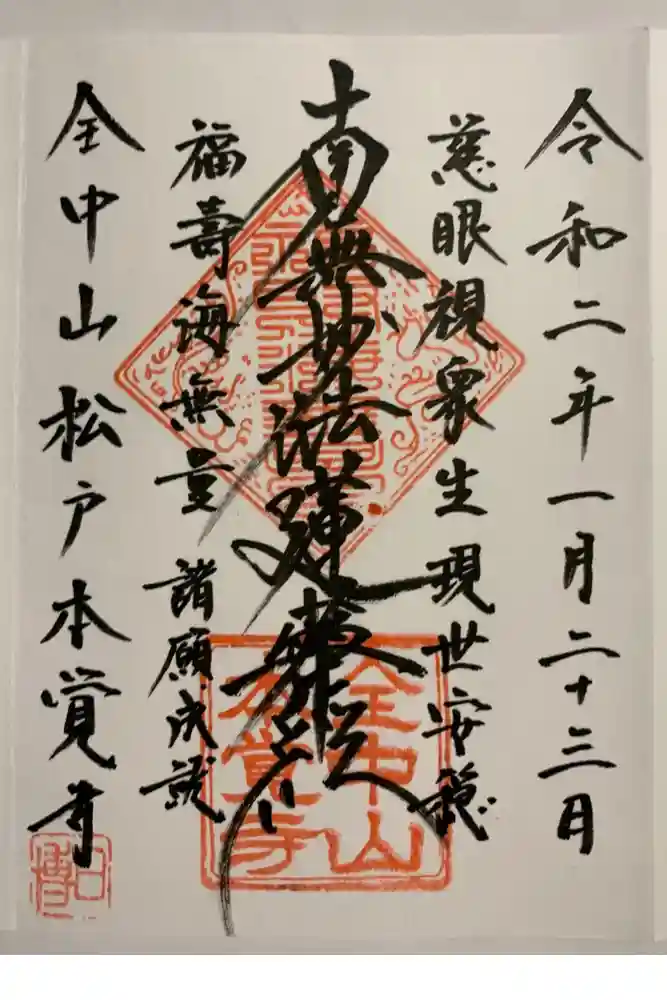 令和二年一月二十三日
慈眼視衆生 現世安穏
南無妙法蓮華経
福壽海無量 諸願成就
全中山松戸本覚寺
全中山
本覚寺